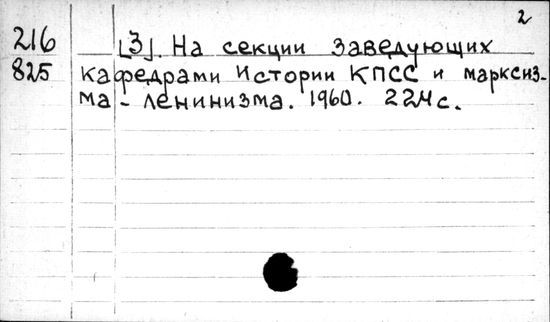 2
216 [3]. На секции заведующих
825 кафедрами Истории КПСС и марксиз-
ма - ленинизма. 1960. 224 с.